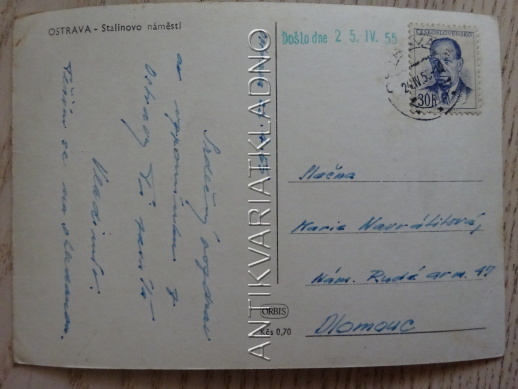 OSTRAVA - Stalinovo náměstí
Došlo dne 2 5. IV. 55
ČESKOSLOVENSKO
30 h
Srdečný pozdrav
a vzpomínku z
Ostravy Ti posílá
Vladimír.
Těším se na shledanou.
ANTIKVARIATKLADNO
Slečna
Marie Navrátilová,
Nám. Rudé arm. 17
Olomouc
ORBIS
Kčs 0,70